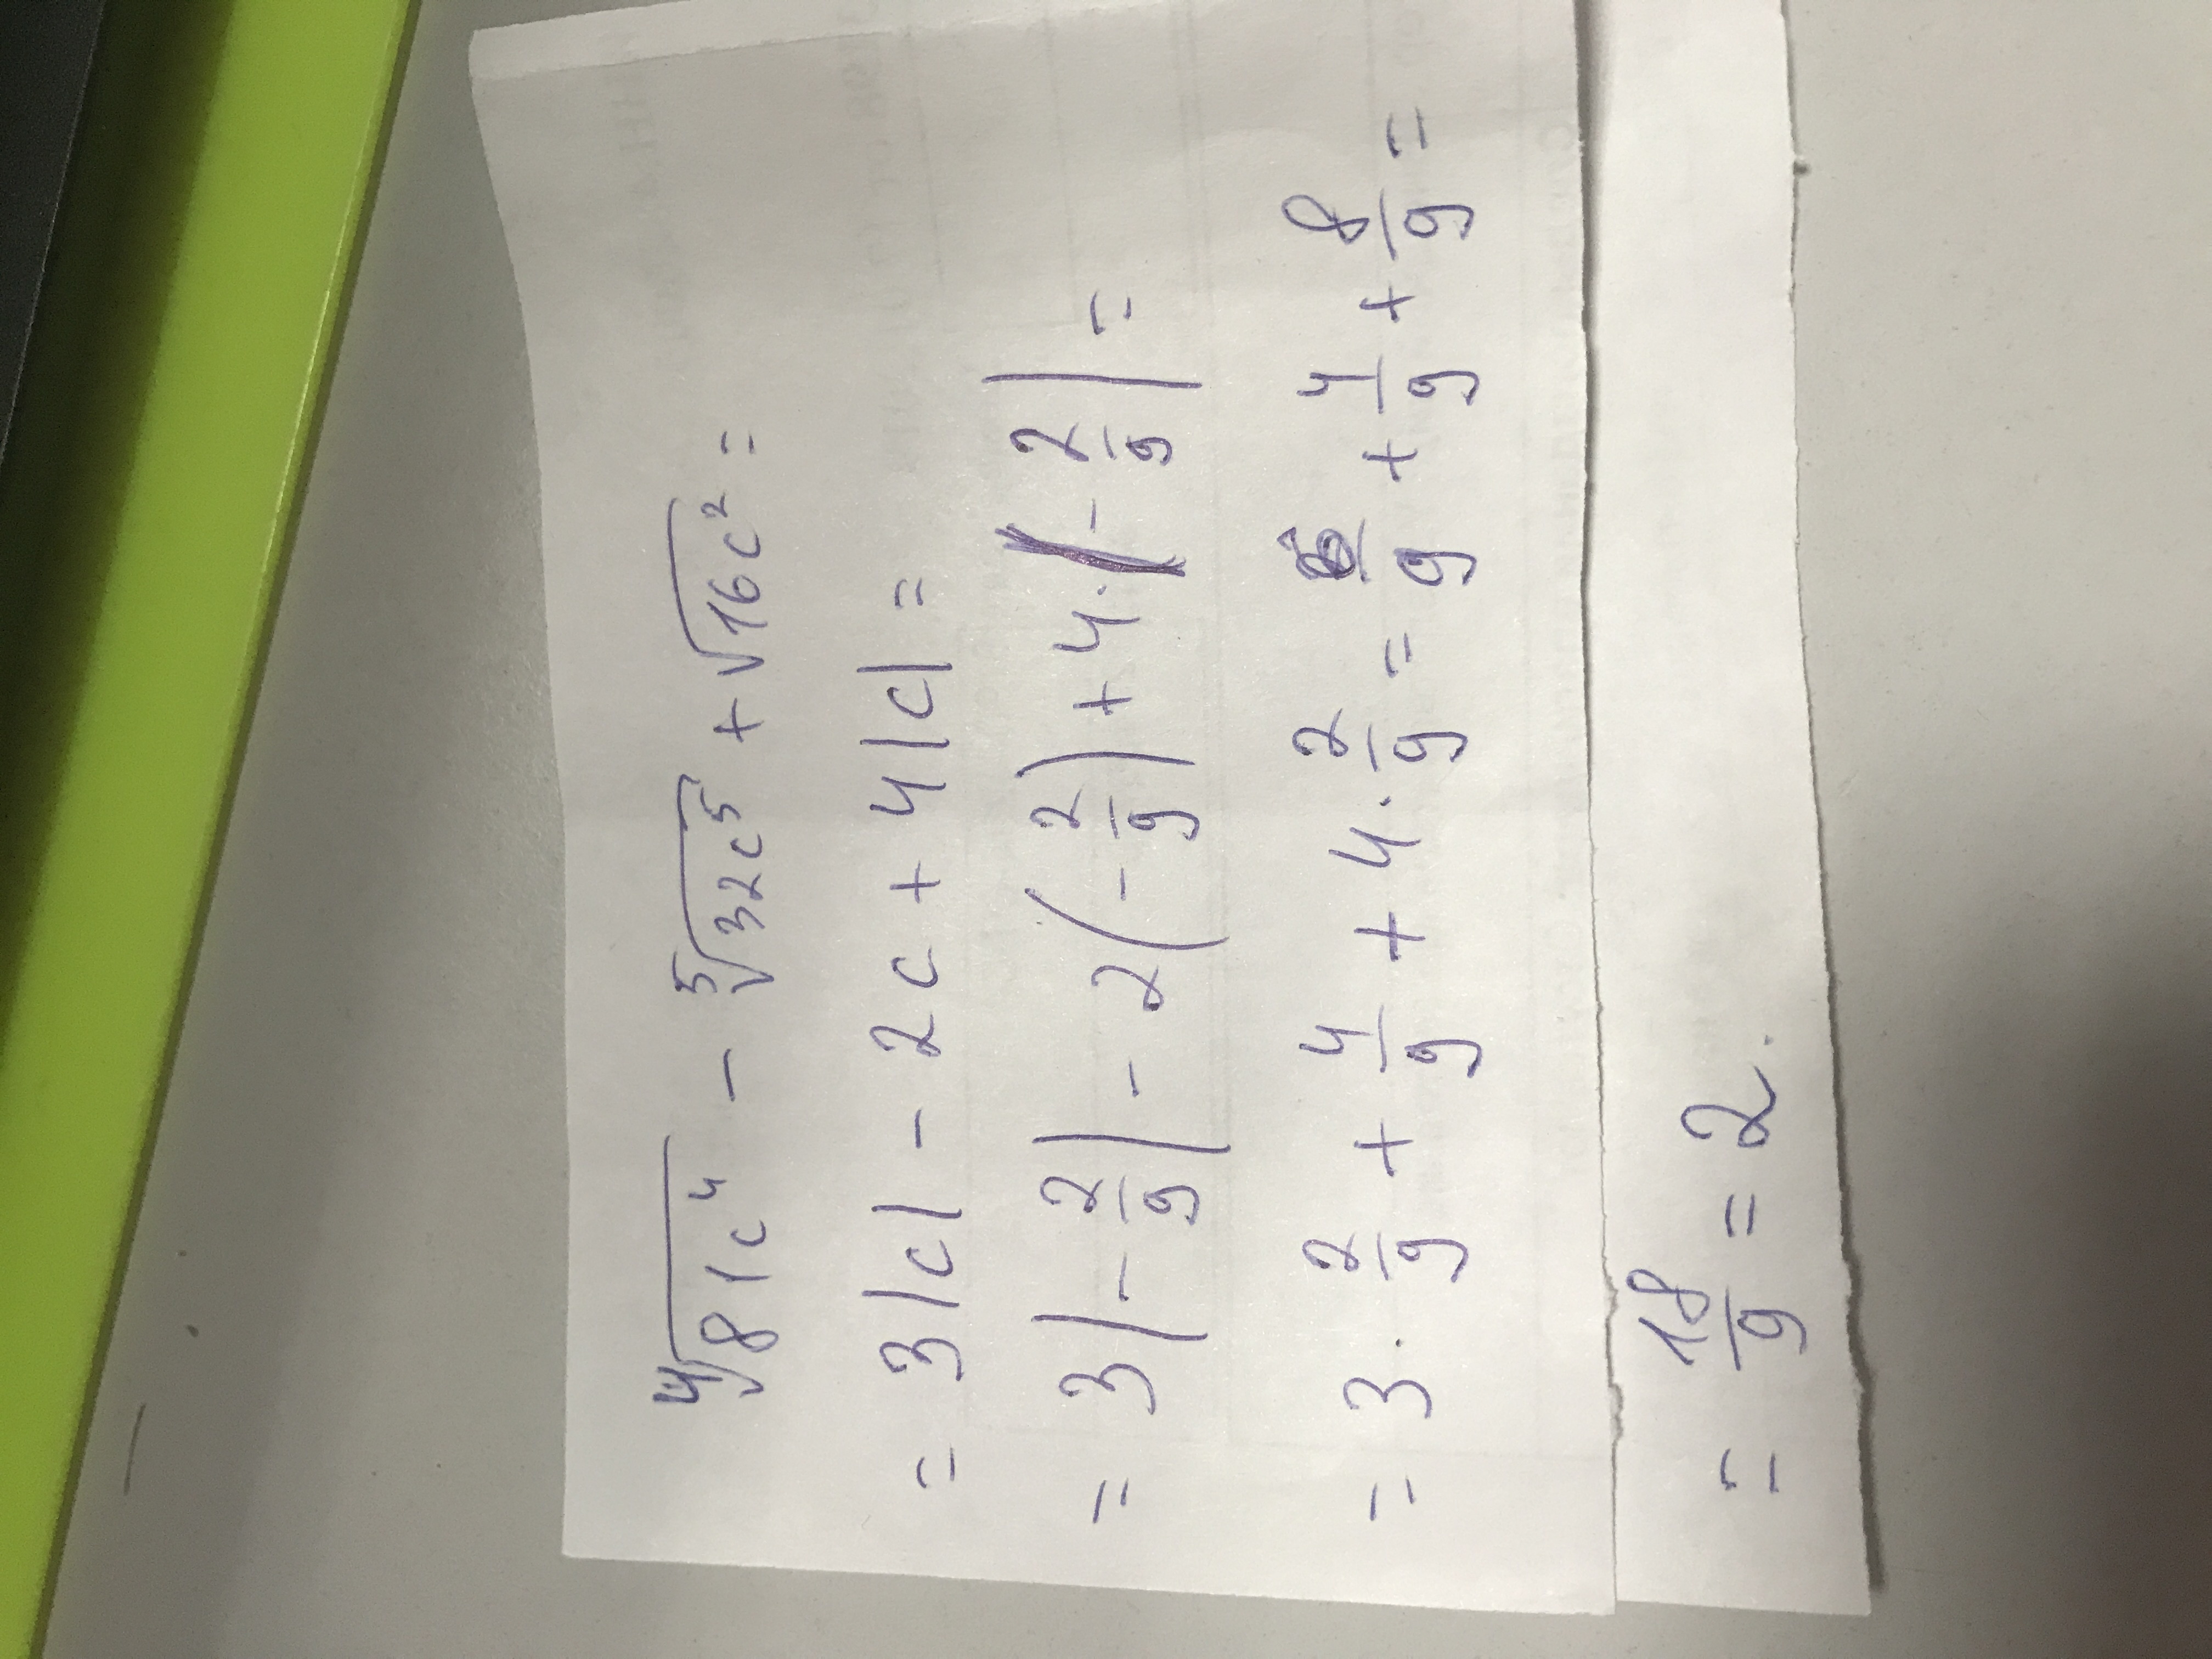 ⁴√(81c⁴) - ⁵√(32c⁵) + √(16c²) =
= 3|c| - 2c + 4|c| =
= 3|-2/9| - 2(-2/9) + 4·|-2/9| =
= 3·2/9 + 4/9 + 4·2/9 = 6/9 + 4/9 + 8/9 =
= 18/9 = 2.